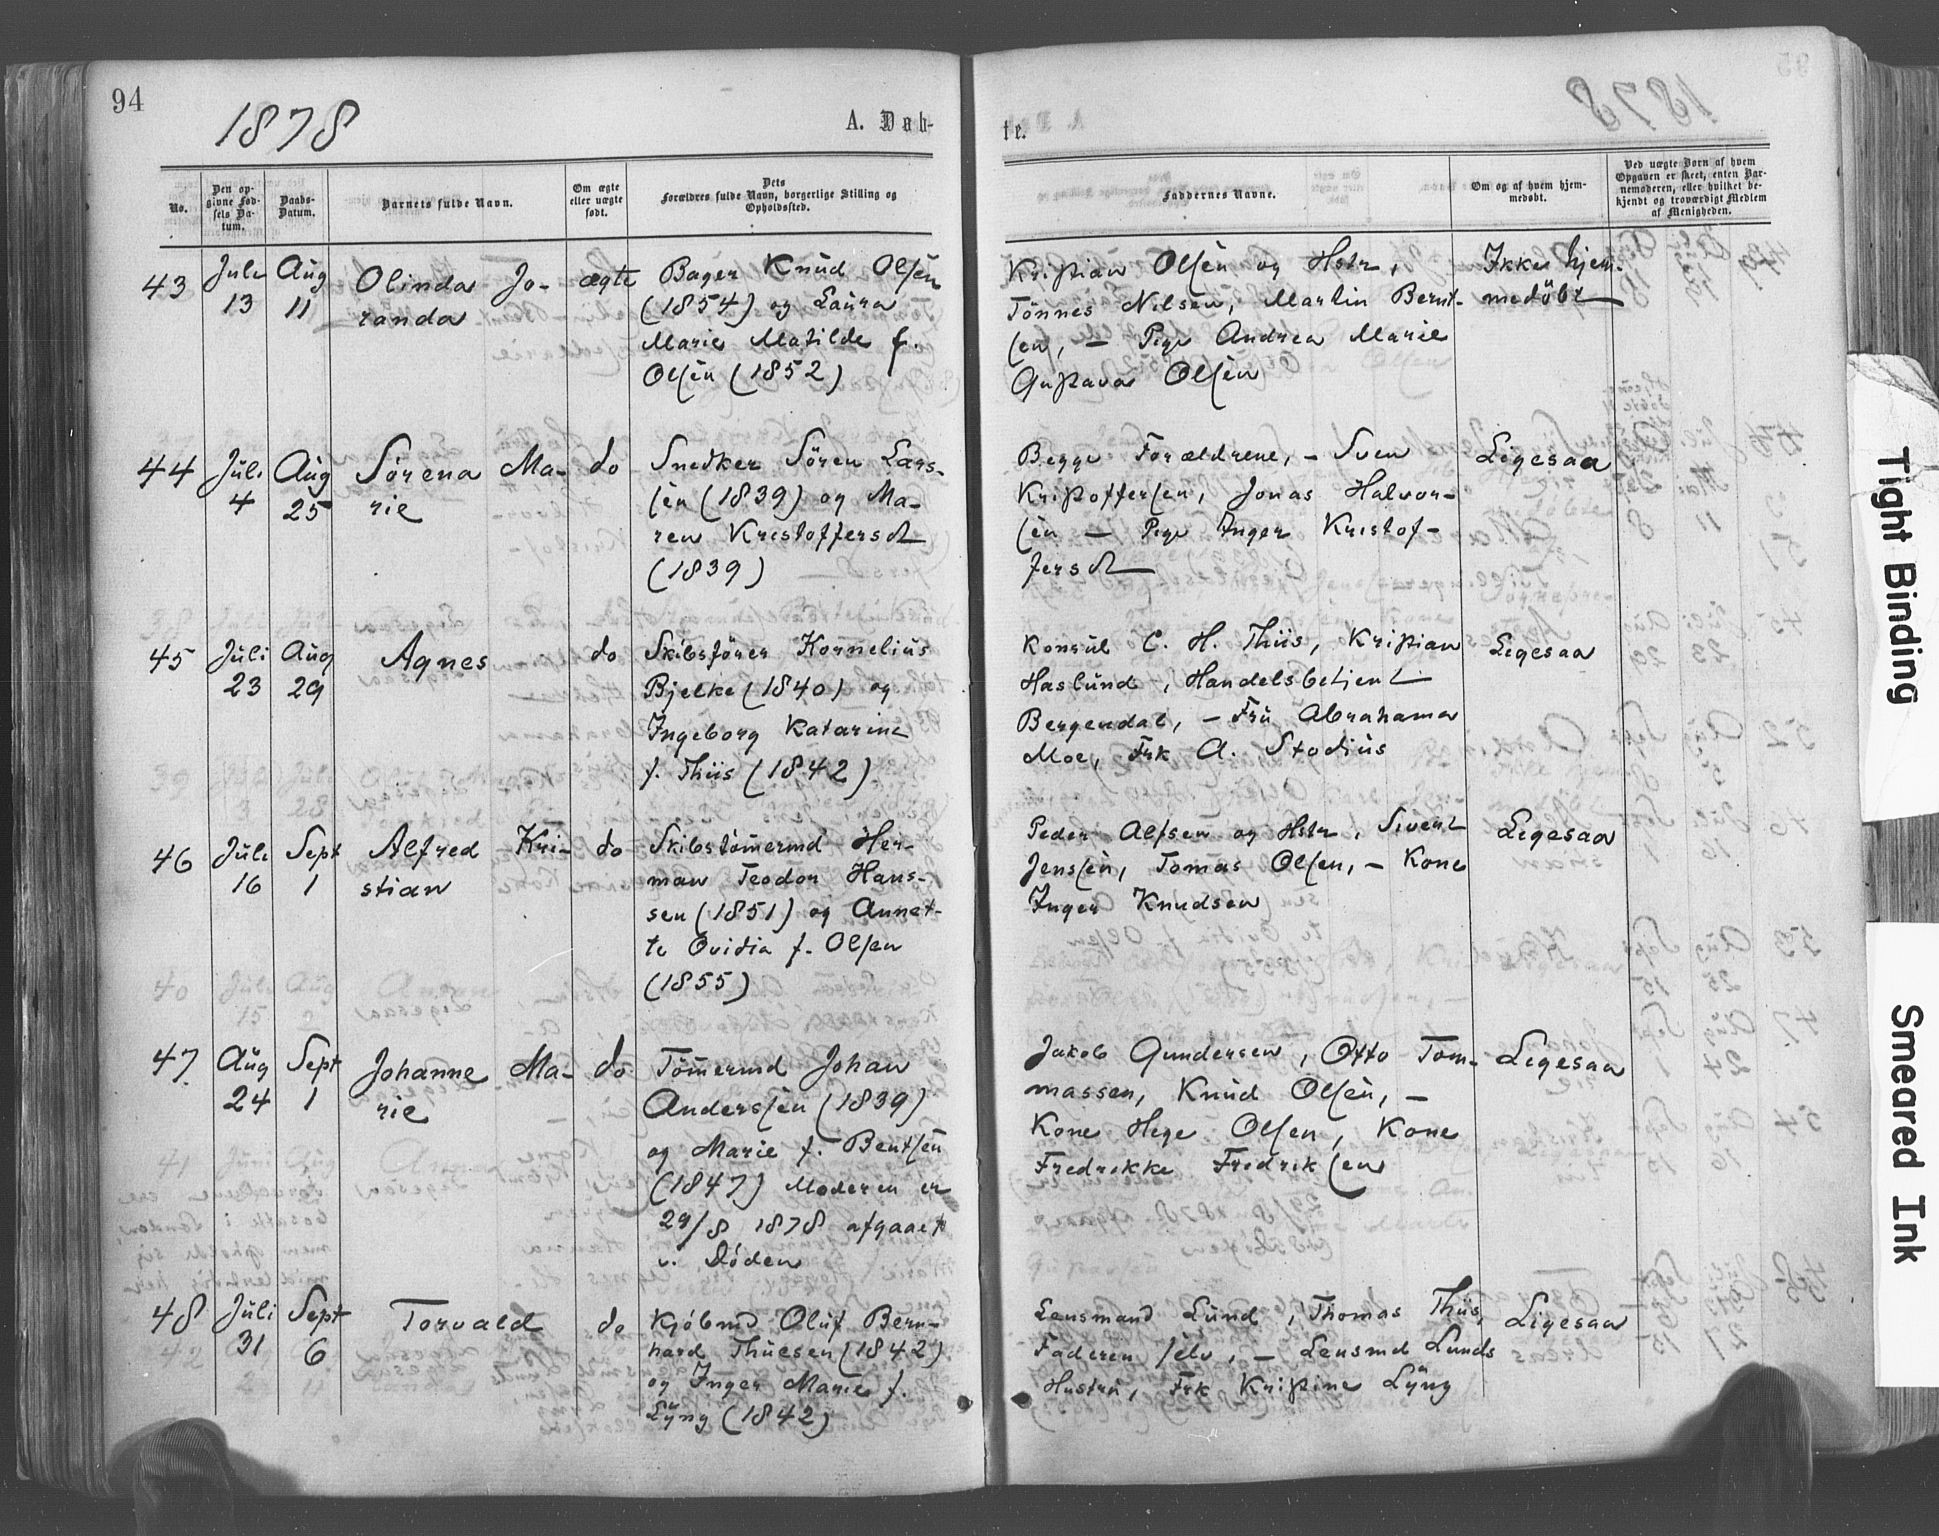 94
1878
A. Daab-
te.
No.
Den op-
givne Fød-
sels Da-
tum.
Daabs-
Datum.
Barnets fulde Navn.
Om ægte
eller uægte
født.
Dets
Forældres fulde Navn, borgerlige Stilling og
Opholdssted.
Faddernes Navne.
Om og af hvem hjem-
medøbt.
Ved uægte Børn af hvem
Opgaven er skeet, enten Bar-
nemoderen, eller hvilket be-
kjendt og troværdigt Medlem
af Menigheden.
43 Juli Aug Olinda Jo- ægte Bager Knud Olsen
13 11 randa (1854) og Laura
Marie Matilde f.
Olsen (1852)
Kristian Olsen og Hstr,
Tönnes Nilsen, Martin Bernt-
sen, — Pige Andrea Marie
Gustava Olsen
Ikke hjem-
medöbt
44 Juli Aug Sörena Ma- do Snedker Sören Lars-
4 25 rie sen (1839) og Ma-
ren Kristoffersdt
(1839)
Begge Forældrene, – Sven
Kristoffersen, Jonas Halvor-
sen — Pige Inger Kristof-
fersdt
Ligesaa
45 Juli Aug Agnes do Skibsförer Kornelius
23 29 Bjelke (1840) og
Ingeborg Katarine
f. Thiis (1842)
Konsul C. H. Thiis, Kristian
Haslund, Handelsbetjent
Bergendal, – Fru Abrahama
Moe, Frk A. Stodius
Ligesaa
46 Juli Sept Alfred Kri- do Skibstömermd Her-
16 1 stian man Teodor Hans-
sen (1851) og Annet-
te Ovidia f. Olsen
(1855)
Peder Alfsen og Hstr, Sivert
Jenssen, Tomas Olsen, – Kone
Inger Knudsen
Ligesaa
47. Aug Sept Johanne Ma- do Tömermd Johan
24 1 rie Anderssen (1839)
og Marie f. Bentsen
(1847) Moderen er
29/8 1878 afgaaet
v. Döden
Jakob Gundersen, Otto Tom-
massen, Knud Olsen, —
Kone Hege Olsen, Kone
Fredrikke Fredriksen
Ligesaa
48 Juli Sept Torvald do Kjöbmd Oluf Bern-
31 6 hard Thuesen (1842)
og Inger Marie f.
Lÿng (1842)
Lensmand Lund, Thomas Thiis,
Faderen selv, – Lensmd Lunds
Hustru, Frk Kristine Lÿng
Ligesaa
Tight Binding
Smeared Ink